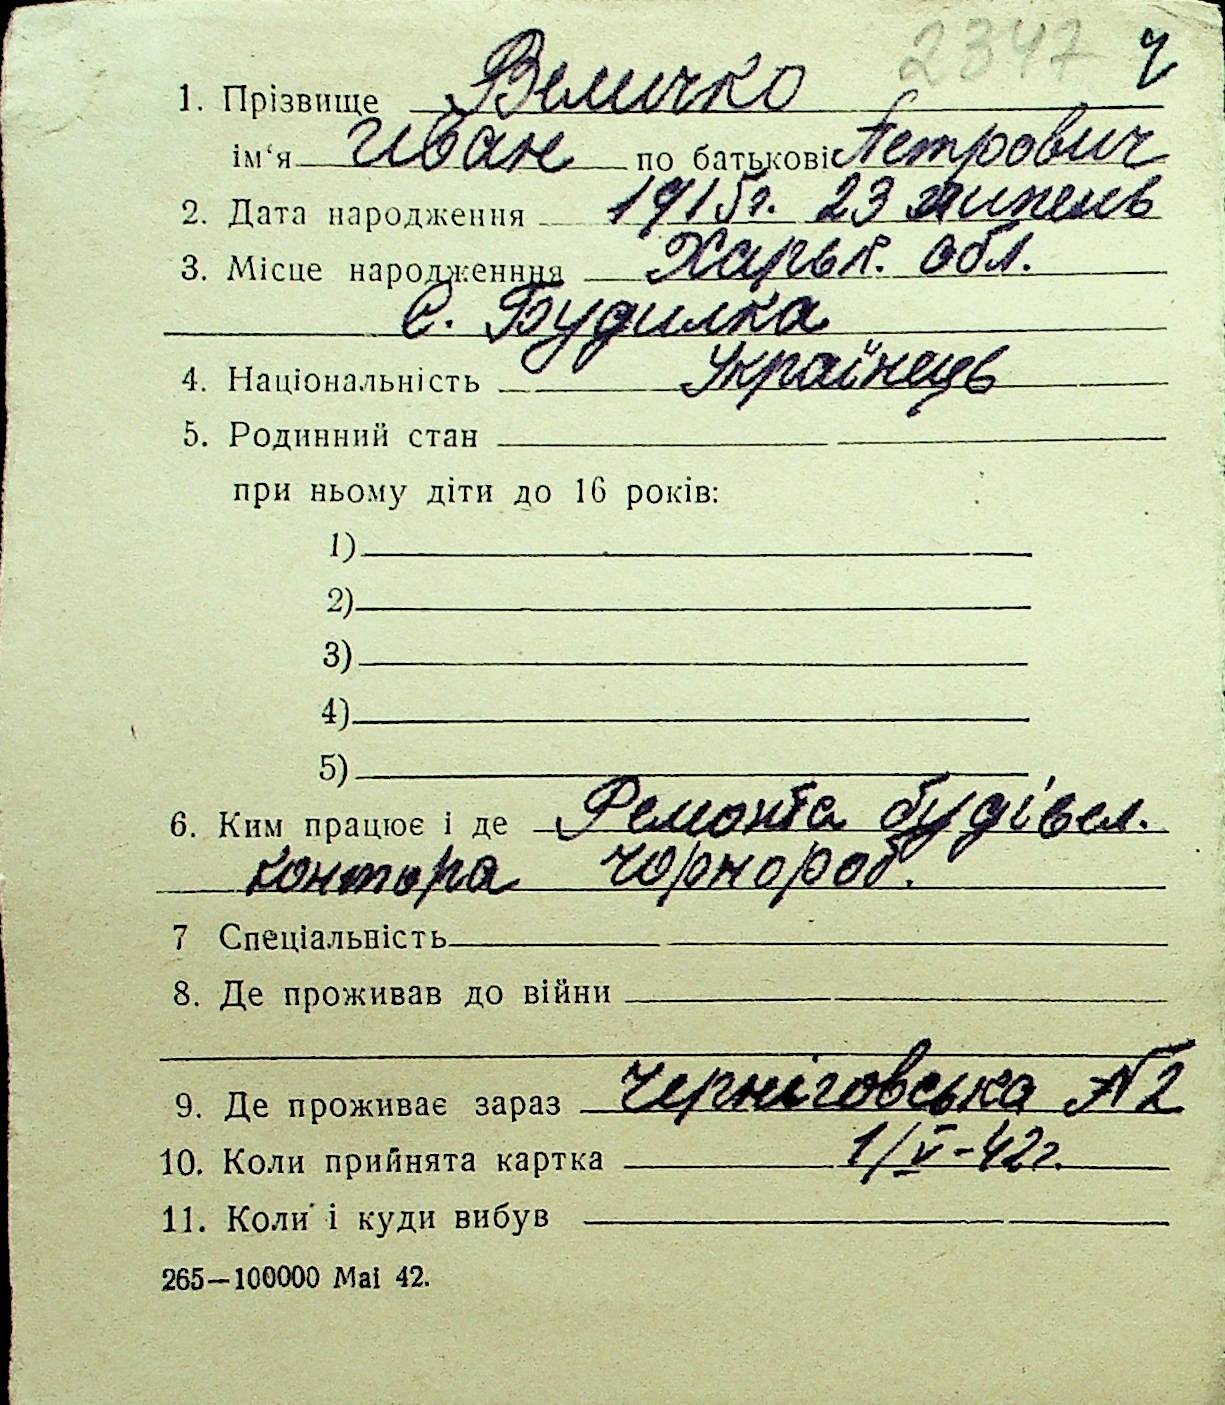 2347 ч
1. Прізвище Величко
ім‘я Иван по батькові Петрович
2. Дата народження 1915г. 23 липень
3. Місце народженння Харьк. обл.
с. Будилка
4. Національність Українець
5. Родинний стан
при ньому діти до 16 років:
1)
2)
3)
4)
5)
6. Ким працює і де Ремонта будівел.
контора чорнороб.
7 Спеціальність
8. Де проживав до війни
9. Де проживає зараз Черніговська № 2
10. Коли прийнята картка 1/V-42г.
11. Коли і куди вибув
265—100000 Mai 42.